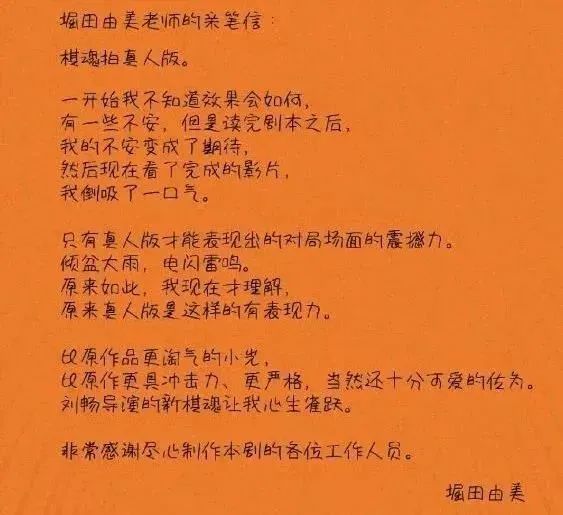 堀田由美老师的亲笔信：
棋魂拍真人版。
一开始我不知道效果会如何，
有一些不安，但是读完剧本之后，
我的不安变成了期待，
然后现在看了完成的影片，
我倒吸了一口气。
只有真人版才能表现出的对局场面的震撼力。
倾盆大雨，电闪雷鸣。
原来如此，我现在才理解，
原来真人版是这样的有表现力。
比原作品更淘气的小光，
比原作更具冲击力、更严格，当然还十分可爱的佐为。
刘畅导演的新棋魂让我心生雀跃。
非常感谢尽心制作本剧的各位工作人员。
堀田由美